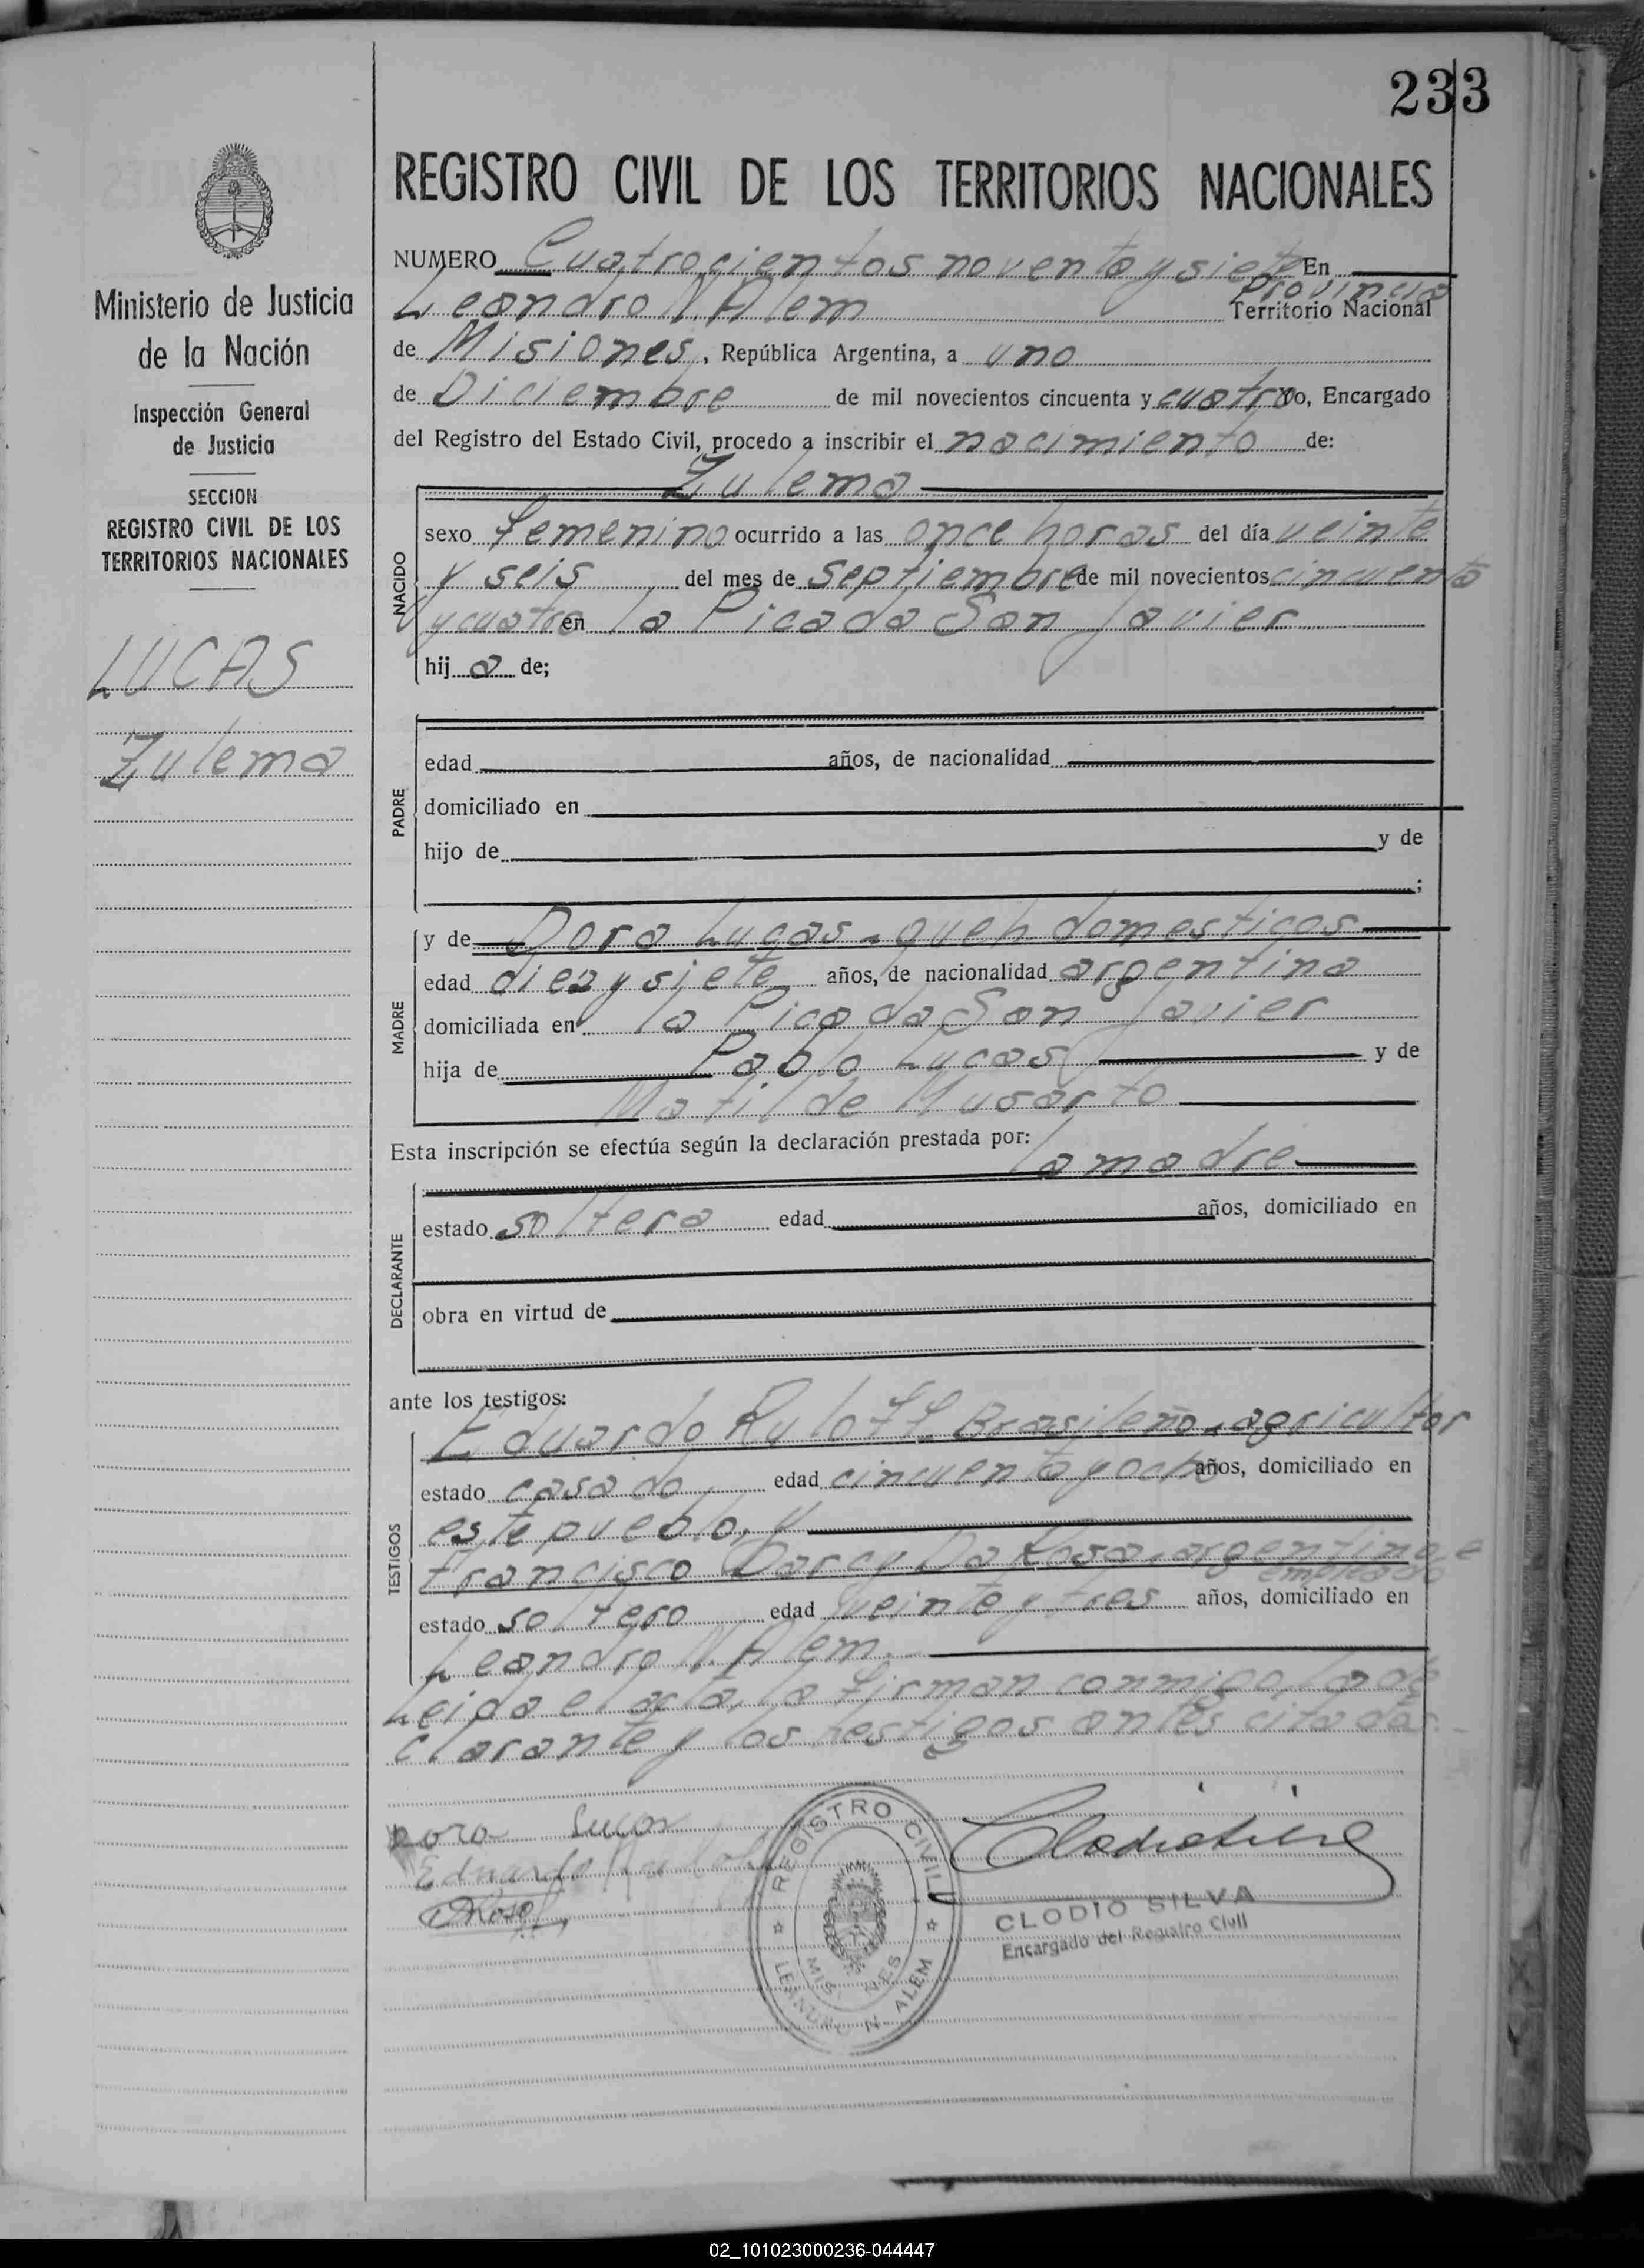 233
REGISTRO CIVIL DE LOS TERRITORIOS NACIONALES
Ministerio de Justicia
de la Nación
Inspección General
de Justicia
SECCION
REGISTRO CIVIL DE LOS
TERRITORIOS NACIONALES
LUCAS
Zulema
NUMERO Cuatrocientos noventa y siete En
Provincia
Leandro N. Alem Territorio Nacional
de Misiones, República Argentina, a uno
de Diciembre de mil novecientos cincuenta y cuatro yo, Encargado
del Registro del Estado Civil, procedo a inscribir el nacimiento de:
Zulema
NACIDO
sexo femenino ocurrido a las once horas del día veinte
y seis del mes de septiembre de mil novecientos cincuenta
y cuatro en la Picada San Javier
hija de;
PADRE
edad años, de nacionalidad
domiciliado en
hijo de y de
;
MADRE
y de Dora Lucas - queh domesticos
edad diez y siete años, de nacionalidad argentina
domiciliada en la Picada San Javier
hija de Pablo Lucas y de
Matilde
Esta inscripción se efectúa según la declaración prestada por:
la madre
DECLARANTE
estado soltera edad años, domiciliado en
obra en virtud de
ante los testigos:
TESTIGOS
Eduardo Ruloff. Brasileño. agricultor
estado casado edad cincuenta y ocho años, domiciliado en
este pueblo, y
Francisco Darcy Da Rosa, argentino e
empleado
estado soltero edad veinte y tres años, domiciliado en
Leandro N. Alem.
Leida el acta, la firman conmigo, la de
clarante y los testigos antes citados.-
Dora Lucas
Eduardo Ruloff
DRosa
REGISTRO CIVIL
MISIONES
LEANDRO N. ALEM
CLODIO SILVA
Encargado del Registro Civil
02_101023000236-044447